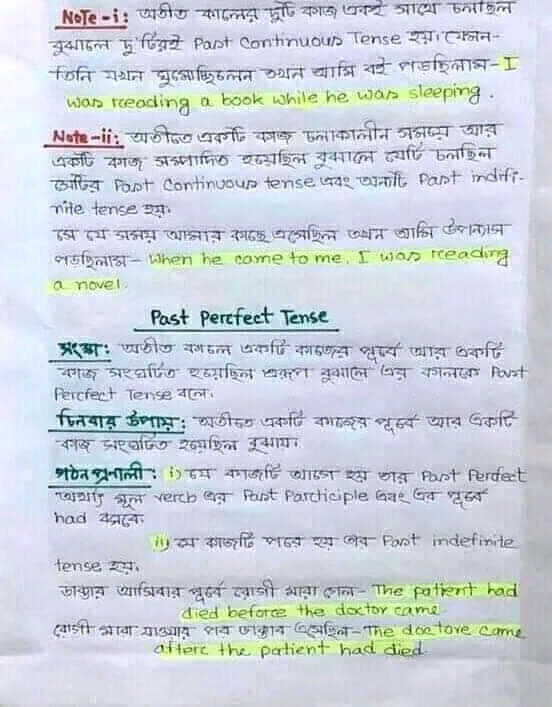 Note-i: অতীত কালের দুটি কাজ একই সাথে চলছিল
বুঝালে দু'টিরই Past Continuous Tense হয়। যেমন-
তিনি যখন ঘুমোচ্ছিলেন তখন আমি বই পড়ছিলাম- I
was reading a book while he was sleeping.
Note-ii: অতীতে একটি কাজ চলাকালীন সময়ে আর
একটি কাজ সম্পাদিত হয়েছিল বুঝালে যেটি চলছিল
সেটির Past Continuous tense এবং অন্যটি Past indifi-
nite tense হয়।
সে যে সময় আমার কাছে এসেছিল তখন আমি উপন্যাস
পড়ছিলাম- When he came to me, I was reading
a novel.
Past Perfect Tense
সংজ্ঞা: অতীত কালে একটি কাজের পূর্বে আর একটি
কাজ সংঘটিত হয়েছিল এরূপ বুঝালে এর কালকে Past
Perfect Tense বলে।
চিনবার উপায়: অতীতে একটি কাজের পূর্বে আর একটি
কাজ সংঘটিত হয়েছিল বুঝায়।
গঠনপ্রনালী: i) যে কাজটি আগে হয় তার Past Perfect
অর্থাৎ মূল verb এর Past Participle এবং এর পূর্বে
had বসবে।
ii) যে কাজটি পরে হয় তার Past indefinite
tense হয়।
ডাক্তার আসিবার পূর্বে রোগী মারা গেল- The patient had
died before the doctor came.
রোগী মারা যাওয়ার পর ডাক্তার এসেছিল- The doctore came
after the patient had died